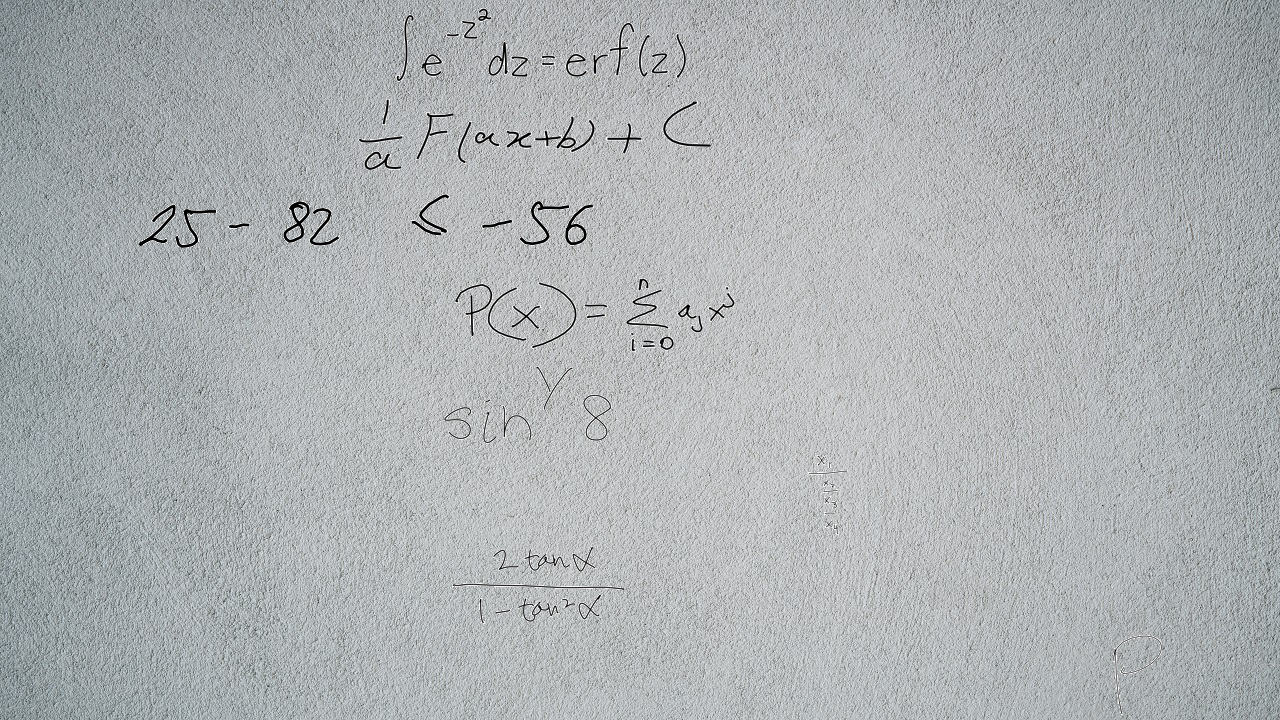 ∫e^{-z^2} dz = erf(z)
\frac{1}{a} F(ax+b) + C
25 - 82 ≤ -56
P(x) = \sum_{i=0}^{n} a_j x^j
sin^γ 8
\frac{x_1}{\frac{x_2}{\frac{x_3}{x_4}}}
\frac{2 tan α}{1 - tan^2 α}
P